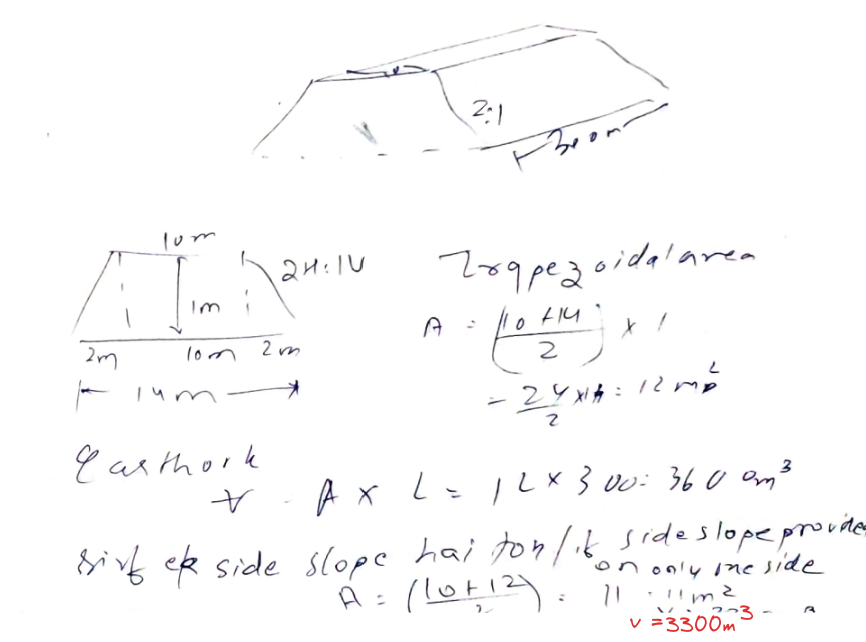 2:1
300m
10m
2H:1V
1m
2m 10m 2m
14m
Trapezoidal area
A = (10+14/2) × 1
= 24/2 × 1 = 12 m²
Earthork
V = A × L = 12 × 300 = 3600 m³
sirf ek side slope hai toh / if side slope provide
on only one side
A = (10+12/2) = 11 m²
V = 3300m³